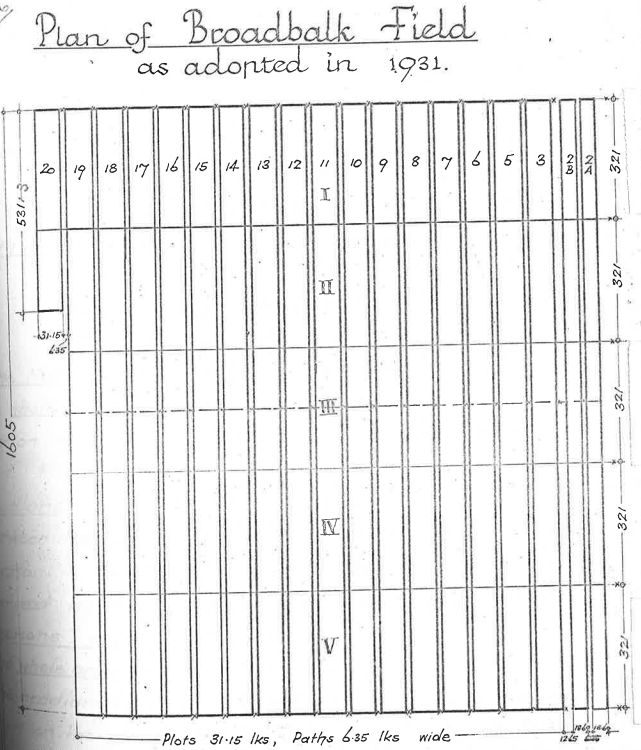 Plan of Broadbalk Field
as adopted in 1931.
20 19 18 17 16 15 14 13 12 11 10 9 8 7 6 5 3 2B 2A
I
II
III
IV
V
321
321
321
321
321
531·3
31·15
6·35
1605
Plots 31·15 lks, Paths 6·35 lks wide